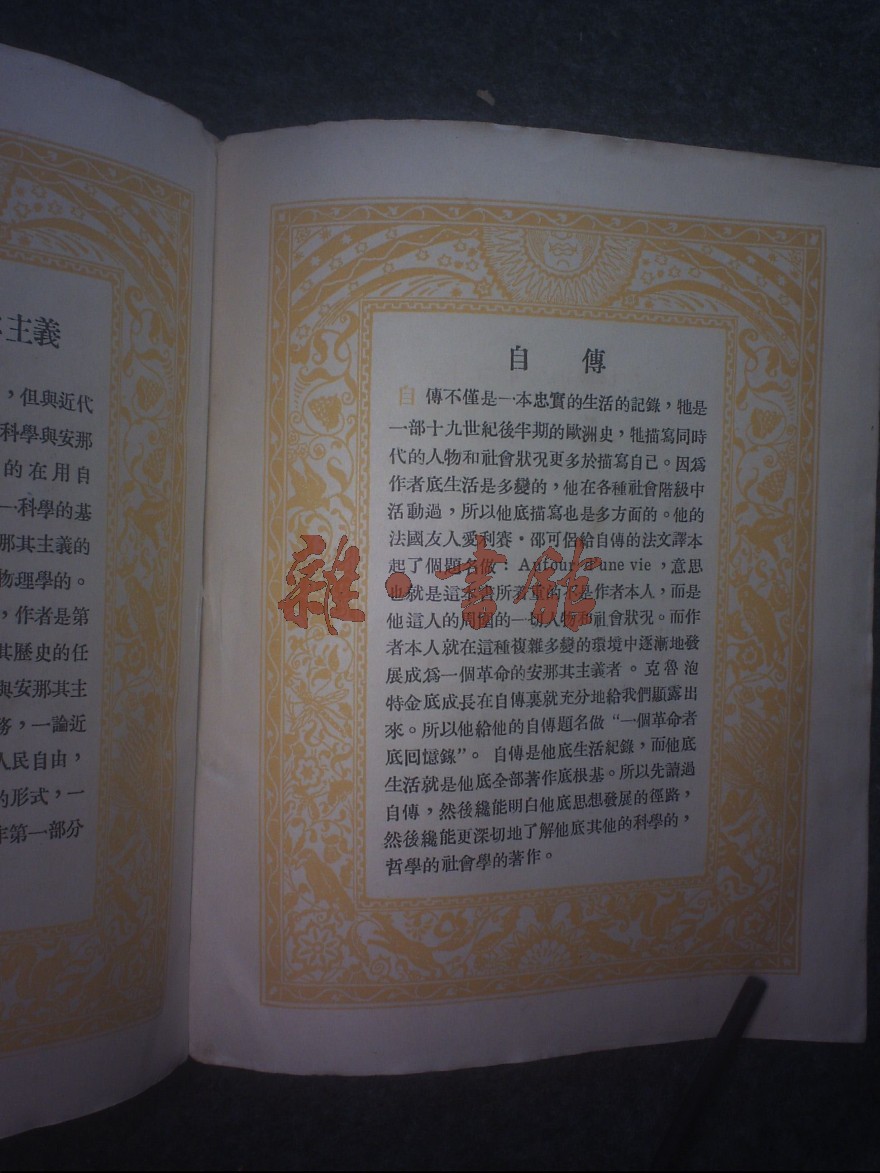 主義
，但與近代
科學與安那
的在用自
一科學的基
那其主義的
物理學的。
，作者是第
其歷史的任
與安那其主
務，一論近
人民自由，
的形式，一
年第一部分
自傳
自傳不僅是一本忠實的生活的記錄，牠是
一部十九世紀後半期的歐洲史，牠描寫同時
代的人物和社會狀況更多於描寫自己。因爲
作者底生活是多變的，他在各種社會階級中
活動過，所以他底描寫也是多方面的。他的
法國友人愛利賽·邵可侶給自傳的法文譯本
起了個題名做：Autour d'une vie，意思
也就是這本書所着重的不是作者本人，而是
他這人的周圍的一切人物和社會狀況。而作
者本人就在這種複雜多變的環境中逐漸地發
展成爲一個革命的安那其主義者。克魯泡
特金底成長在自傳裏就充分地給我們顯露出
來。所以他給他的自傳題名做“一個革命者
底回憶錄”。自傳是他底生活紀錄，而他底
生活就是他底全部著作底根基。所以先讀過
自傳，然後纔能明白他底思想發展的徑路，
然後纔能更深切地了解他底其他的科學的，
哲學的社會學的著作。
雜·書館